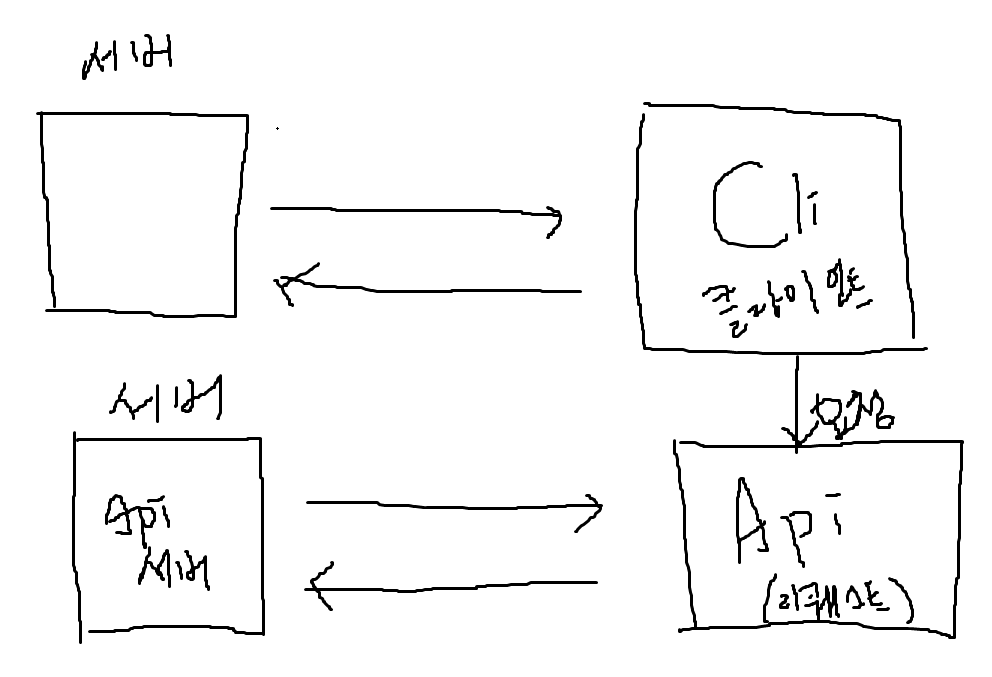 서버
Cli
클라이언트
서버
요청
Api
서버
Api
(리퀘스트)